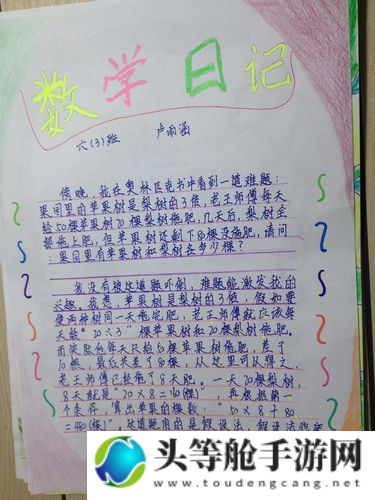 数学日记
六(3)班 卢雨涵
傍晚,我在奥林匹克书中看到一道难题:
果园里的苹果树是梨树的3倍,老王师傅每天
给50棵苹果树20棵梨树施肥,几天后,梨树全
部施上肥,但苹果树还剩下80棵没施肥,请问
:果园里有苹果树和梨树各多少棵?
我没有被这道题吓倒,难题能激发我的
兴趣。我想,苹果树是梨树的3倍,假如要
使两种树同一天施完肥,老王师傅就应该每
天给"20×3"棵苹果树和20棵梨树施肥。
而实际他每天只给50棵苹果树施肥,差了
10棵,最后共差了80棵,从这里可以得知,
老王师傅已经施了8天肥。一天20棵梨树,
8天就是"20×8=160(棵)",再根据第一
个条件,算出苹果的棵数:"50×8+80
=480(棵)"。这道题用的是假设法,
头等舱手游网
www.toudengcang.net